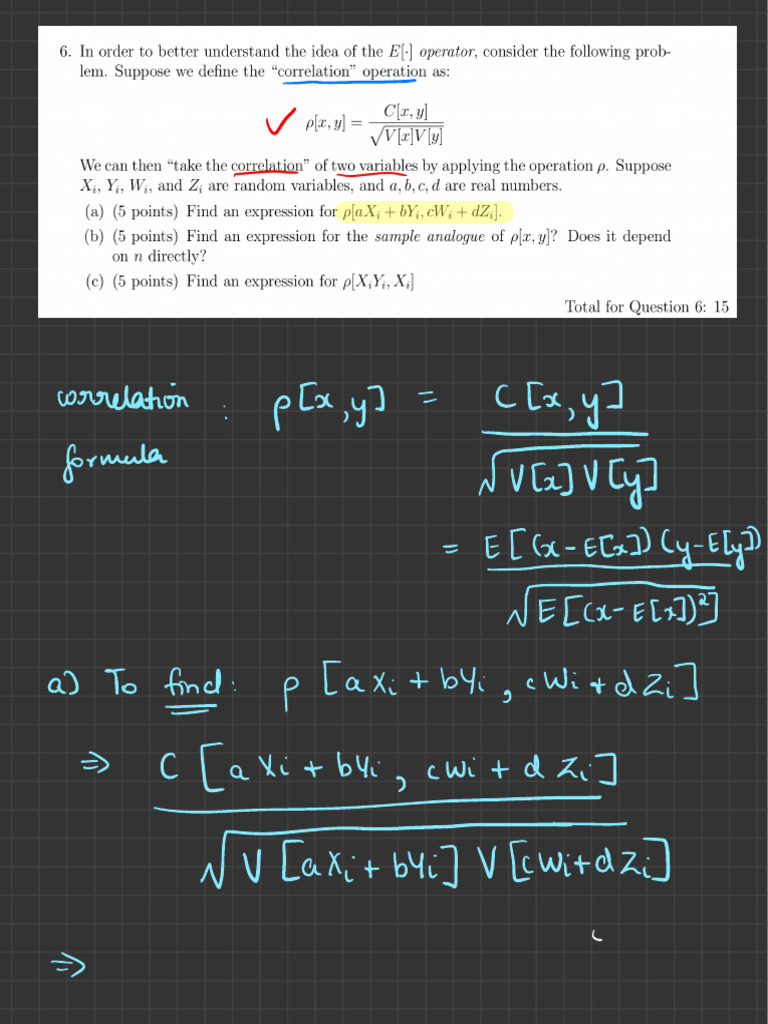 6. In order to better understand the idea of the E[·] operator, consider the following prob-
lem. Suppose we define the “correlation” operation as:
ρ[x, y] = C[x, y] / √V[x]V[y]
We can then “take the correlation” of two variables by applying the operation ρ. Suppose
Xᵢ, Yᵢ, Wᵢ, and Zᵢ are random variables, and a, b, c, d are real numbers.
(a) (5 points) Find an expression for ρ[aXᵢ + bYᵢ, cWᵢ + dZᵢ].
(b) (5 points) Find an expression for the sample analogue of ρ[x, y]? Does it depend
on n directly?
(c) (5 points) Find an expression for ρ[XᵢYᵢ, Xᵢ]
Total for Question 6: 15
correlation : ρ[x, y] = C[x, y]
formula √V[x] V[y]
= E[(x - E[x]) (y - E[y])
√E[(x - E[x])²]
a) To find: ρ [aXᵢ + bYᵢ, cWᵢ + dZᵢ]
⇒ C [aXᵢ + bYᵢ, cWᵢ + dZᵢ]
√V [aXᵢ + bYᵢ] V [cWᵢ + dZᵢ]
⇒